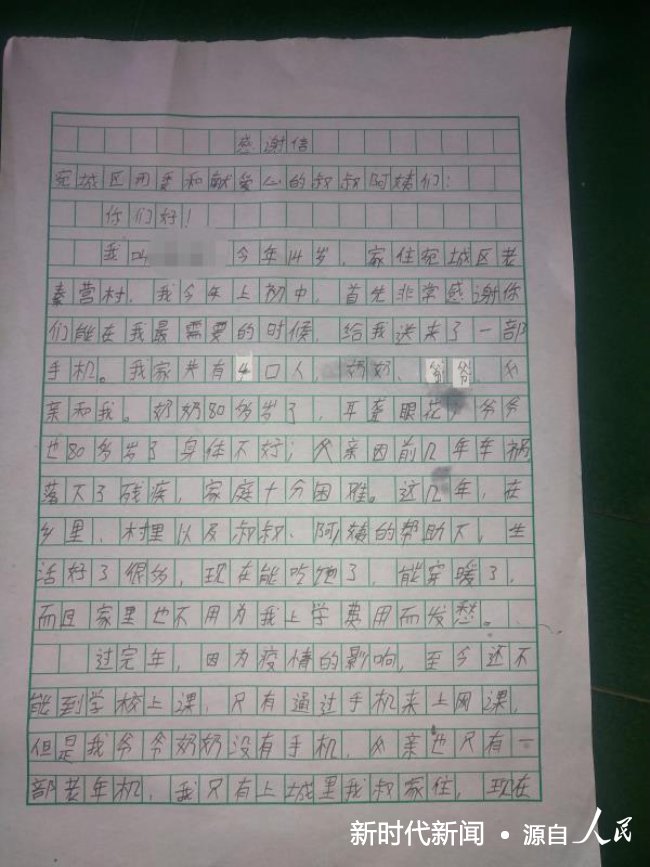 感谢信
宛城区用爱和献爱心的叔叔阿姨们：
你们好！
我叫 今年14岁，家住宛城区老
秦营村，我今年上初中，首先非学感谢你
们能在我最需要的时候，给我送来了一部
手机。我家共有4口人，奶奶、爷爷、父
亲和我。奶奶80多岁了，耳聋眼花，爷爷
也80多岁了身体不好；父亲因前几年车祸
落下了残疾，家庭十分困难。这几年，在
乡里、村里以及叔叔、阿姨的帮助下，生
活好了很多，现在能吃饱了，能穿暖了，
而且家里也不用为我上学费用而发愁。
过完年，因为疫情的影响，至今还不
能到学校上课，只有通过手机来上网课，
但是我爷爷奶奶没有手机，父亲也只有一
部老年机，我只有上城里我叔家住，现在
新时代新闻·源自人民